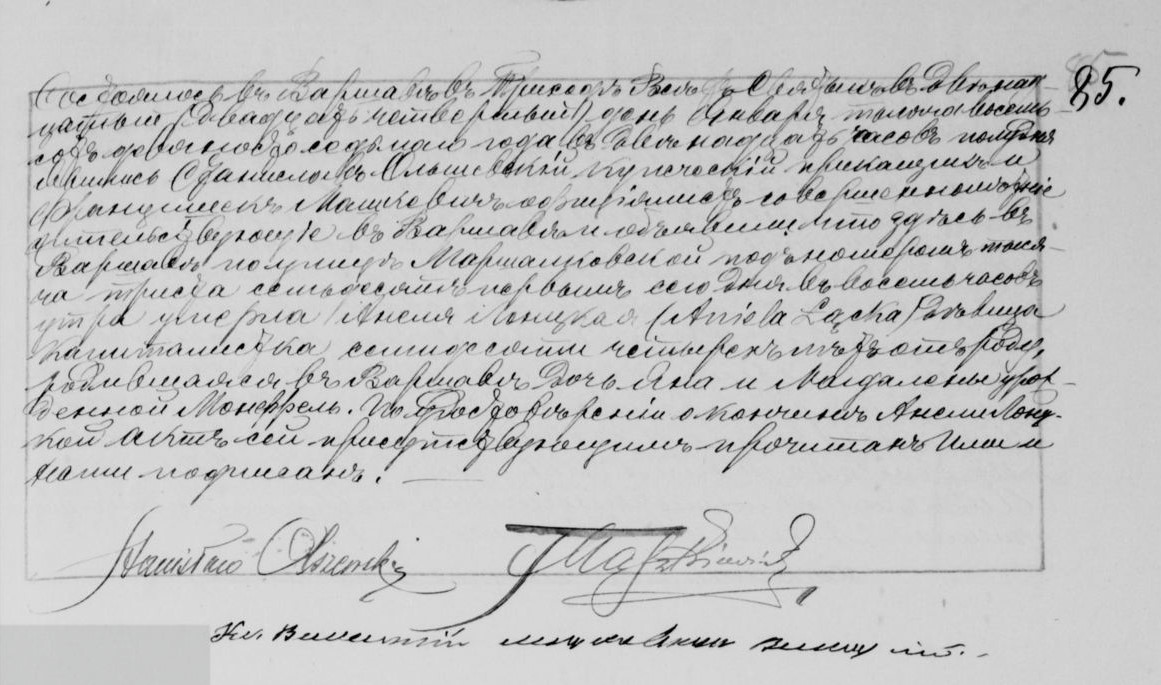 85.
Состоялось въ Варшавѣ въ Приходѣ Всѣхъ Святыхъ въ двѣнад-
цатый (двадцать четвертый) день Января тысяча восемь-
сотъ девяносто седьмаго года въ двѣнадцать часовъ полудня
явились Станиславъ Ольшевскій купеческій прикащикъ и
Францишекъ Машкевичъ оффиціалистъ совершеннолѣтніе
жительствующіе въ Варшавѣ и объявили что здѣсь въ
Варшавѣ по улицѣ Маршалковской подъ номеромъ тыся-
ча триста семьдесятъ первымъ сего дня въ восемь часовъ
утра умерла Анеля Лонцкая (Aniela Łącka) дѣвица
капиталистка семидесяти четырехъ лѣтъ отъ роду,
родившаяся въ Варшавѣ дочь Яна и Магдалены урож-
денной По удостовѣреніи о кончинѣ Анели Лонц-
кой актъ сей присутствующимъ прочитанъ Ими и
Нами подписанъ.
Stanisław Olszewski FMaszkiewicz
Кс.